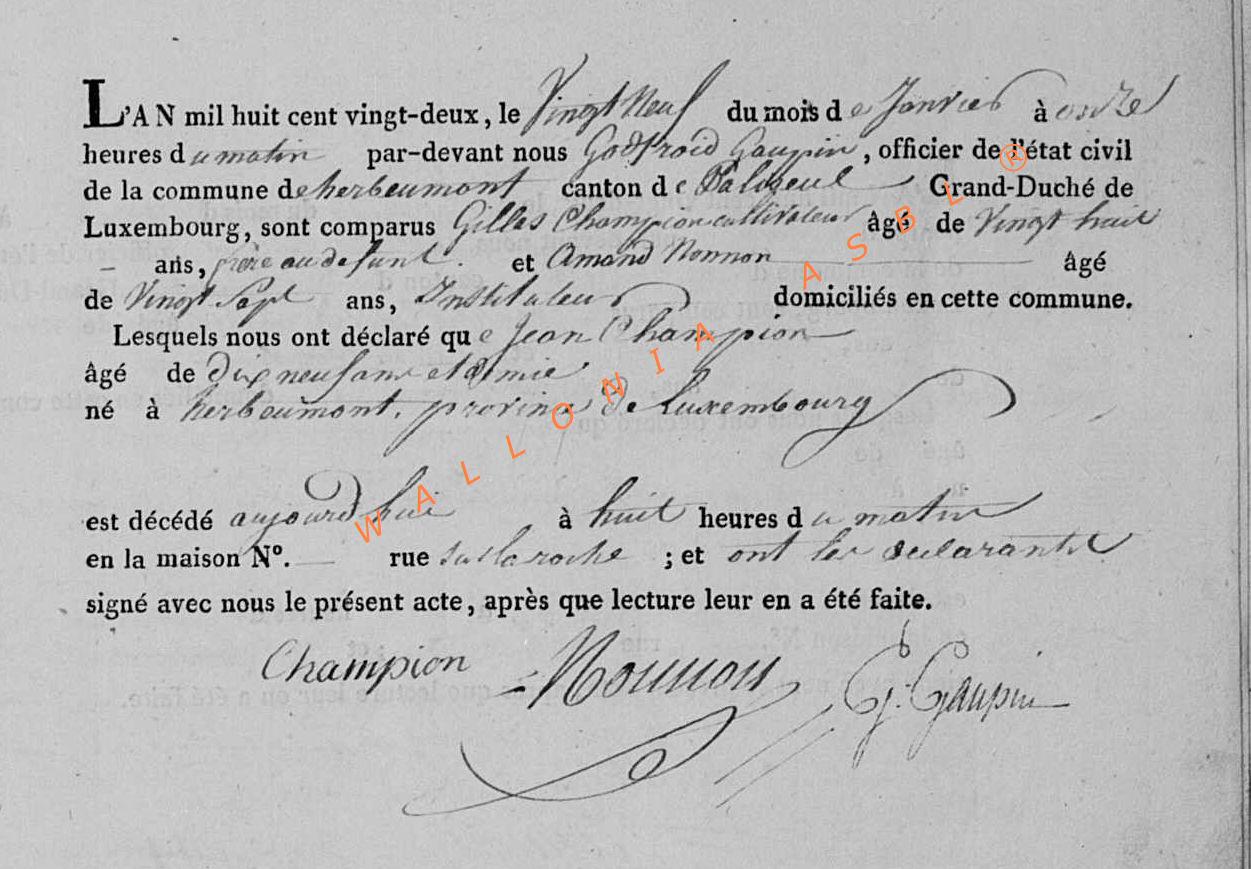 L'AN mil huit cent vingt-deux, le Vingt Neuf du mois de Janvier à onze
heures du matin par-devant nous Godfroid Gaupin, officier de l'état civil
de la commune de herbeumont canton de Paliseul Grand-Duché de
Luxembourg, sont comparus Gilles Champion cultivateur âgé de Vingt huit
– ans, frère au defunt. et Amand Nonnon âgé
de Vingt Sept ans, Instituteur domiciliés en cette commune.
Lesquels nous ont déclaré que Jean Champion
âgé de dix neuf ans et demie
né à herbeumont, province de Luxembourg
est décédé aujourd'hui à huit heures du matin
en la maison N°. — rue sur la roche ; et ont les declarants
signé avec nous le présent acte, après que lecture leur en a été faite.
Champion Nonnon G. Gaupin
WALLONIA ASBL ®